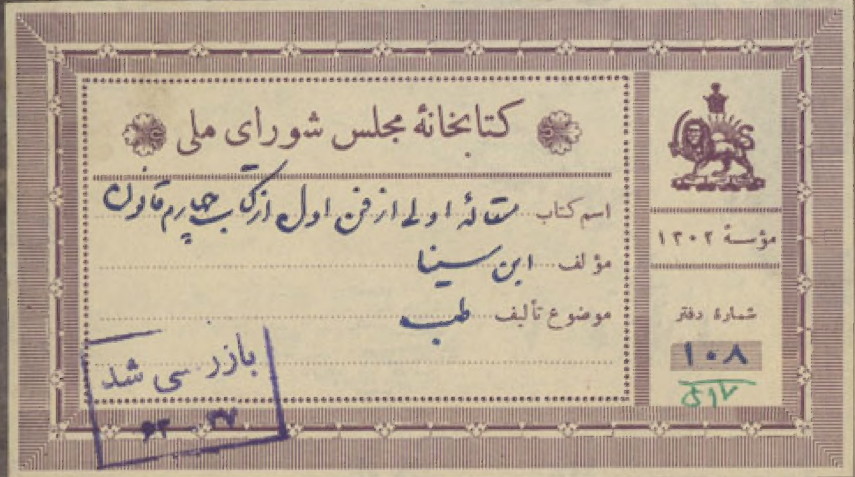 کتابخانهٔ مجلس شورای ملی
اسم کتاب مقالهٔ اولی از فن اول از کتاب چهارم قانون
مؤلف ابن سینا
موضوع تألیف طب
مؤسسهٔ ۱۳۰۲
شمارهٔ دفتر
۱۰۸
بازرسی شد
۳۷ - ۶۲